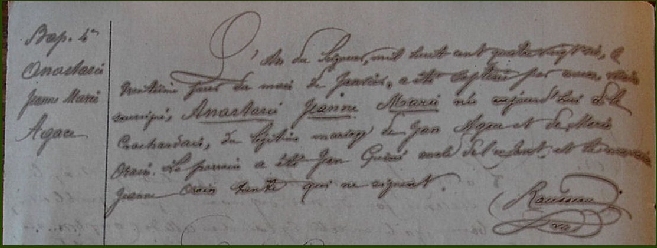 Bap. 4e
Anastasie
Jeanne Marie
Agace
L'An du Seigneur, mil huit cent quatre vingt six, le
trentième jour du mois de Janvier, a été baptisée par nous,
soussigné, Anastasie Jeanne Marie née aujourd'hui à la
du légitime mariage de Jean Agace et de Marie
Orain. Le parrain a été Jean oncle de l'enfant, et la marraine
Jeanne Orain tante qui ne signent.